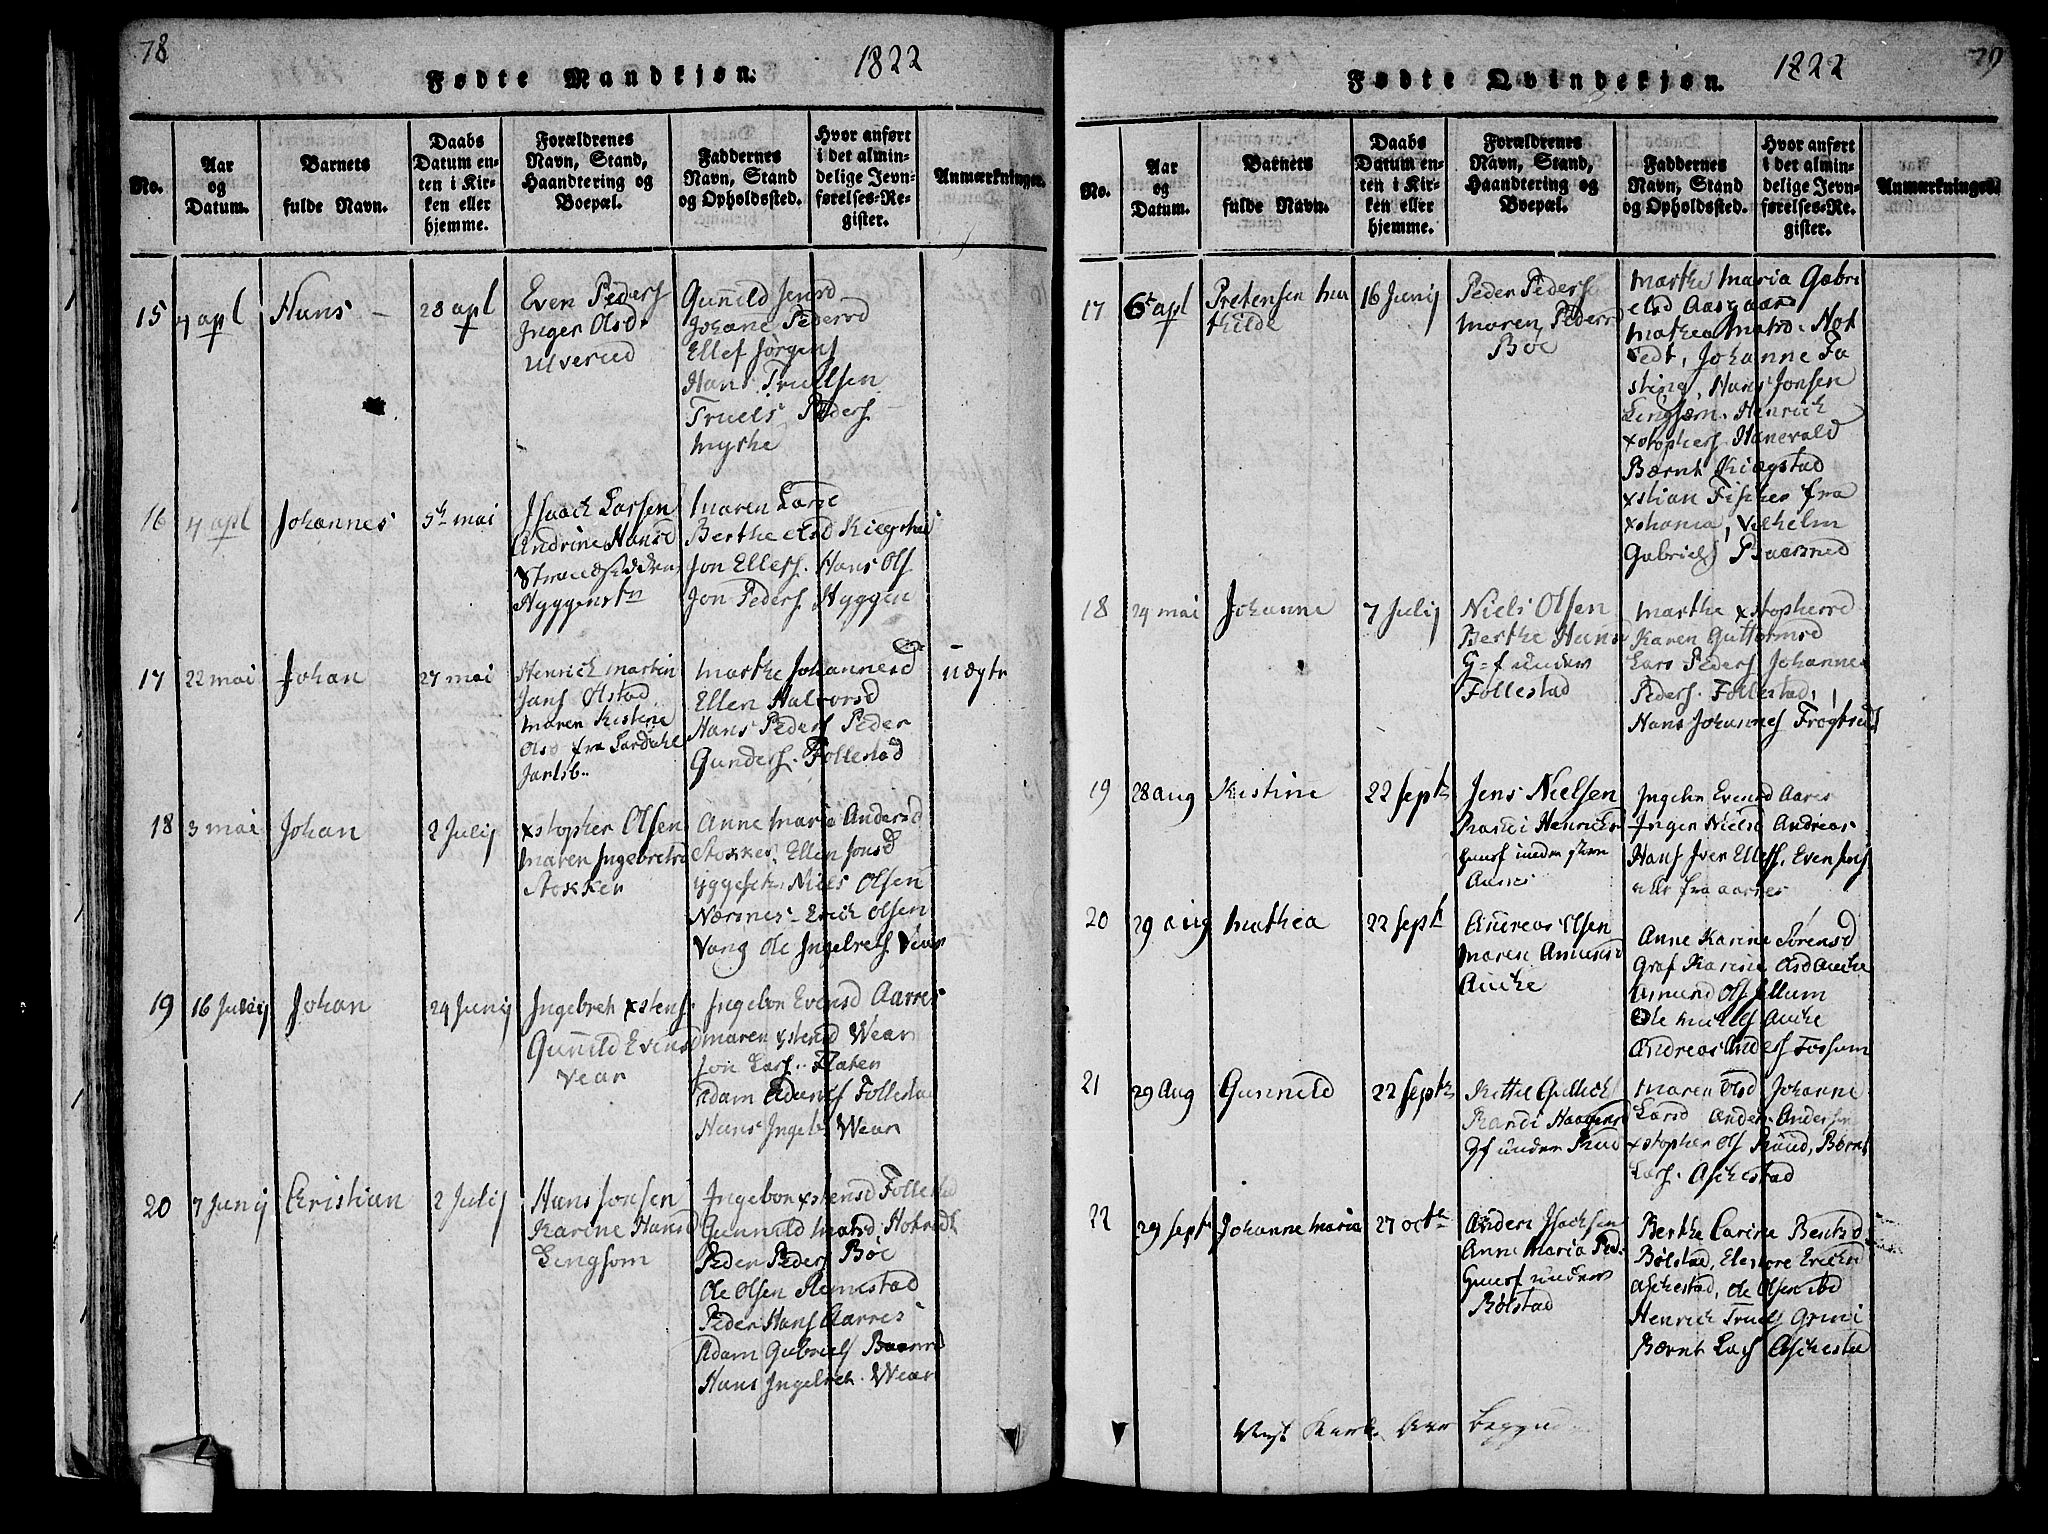 78
Fødte Mandkjøn.
1822
No.
Aar
og
Datum.
Barnets
fulde Navn.
Daabs
Datum en-
ten i Kir-
ken eller
hjemme.
Forældrenes
Navn, Stand,
Haandtering og
Boepæl.
Faddernes
Navn, Stand
og Opholdssted.
Hvor anført
i det almin-
delige Jevn-
førelses-Re-
gister.
Anmærkninger.
15
7 apl
Hans
28 apl
Even Peders
Inger Olsd
Ulverud
Gunild Jensd
Johane Pedersd
Ellef Jørgens
Hans Truelsen
Truels Peders
Myhre
16
4 apl
Johannes
5t mai
Isaach Larsen
Andrine Hansd
Hyggenstn
Maren Larsd
Berthe Olsd
Jon Ellefs. Hans Ols
Jon Peders Hyggen
17
22 mai
Johan
27 mai
Henrich Martin
Jans Olstad
Maren Kistine
Olsd fra Lardahl
Jarlsb..
Marthe Johannesd
Ellen Halvorsd
Hans Peders Peder
Gunders. Follestad
uægte
18
3 mai
Johan
2 Julij
xstopher Olsen
Maren Ingebretsd
Stokker
Anne Marie Andersd
Stokker, Ellen Jonsd
Yggeset Niels Olsen
Næsnes Erich Olsen
Vang Ole Ingebrets Vear
19
16 Julij
Johan
24 Junij
Ingebreth xstens
Gunild Evensd
Vear
Ingebor Evensd Aarres
Maren xstensd Wear
Jon Lars. Flaten
Adam Adams Follestad
Hans Ingeb. Wear
20
7 Junij
Christian
2 Julij
Hans Jonsen
Karine Hansd
Lingsom
Ingebor xstensd Follestad
Gunnild Matsd. Hotvedt
Peder Peders Bøe
Ole Olsen Hemestad
Peder Hans Aarres
Adam Gabriels Baarsrud
Hans Ingebreth. Wear
79
Fødte Qvindekjøn.
1822
No.
Aar
og
Datum.
Barnets
fulde Navn.
Daabs
Datum en-
ten i Kir-
ken eller
hjemme.
Forældrenes
Navn, Stand,
Haandtering og
Boepæl.
Faddernes
Navn, Stand
og Opholdssted.
Hvor anført
i det almin-
delige Jevn-
førelses-Re-
gister.
Anmærkninger.
17
6t apl
Pretensen Ma
thilde
16 Junij
Peder Peders
Maren Pedersd
Bøe
Marthe Maria Gabri
elsd Aasgaard
Mathea Matsd. Hot
vedt, Johanne Fa
sting, Hans Jonsen
Lingsom. Henrich
xstophers. Hanevald
Bærnt Kiægstad
xstian Fischer fra
xstiania, Vilhelm
Gabriels Baarsrud
18
24 mai
Johanne
7 Julij
Niels Olsen
Berthe Hansd
G-f under
Follestad
Marthe xstophersd
Karen Guttormsd
Lars Peders Johannes
Peders. Follestad,
Hans Johannes Frøgtvedt
19
28 aug
Kistine
22 septr
Jens Nielsen
Randi Henrichsd
Huusf under
Aarres
Ingebor Evensd Aarres
Inger Nielsd Andreas
Hans Iver Ellefs, Even Jens
alle fra Aarres
20
29 aug
Mathea
22 septr
Andreas Olsen
Maren Amundsd
Auche
Anne Karine Sørensd
Graf Karine Olsd Auche
Asmund Ols Jellum
Ole Michels Auche
Andreas Anders Fossum
21
29 Aug
Gunnild
22 Septr
Kittel Gullichs
Randi Haagensd
Gf under Ruud
Maren Olsd Johanne
Larsd Anders Andersen
xstopher Ols Ruud, Bærnt
Lars. Aschestad
22
29 sept
Johanne Maria
27 octbr
Anders Isachsen
Anne Maria Ped.
Huusf under
Bølstad
Berthe Carine Bentsd
Bølstad, Elenore Erichsd
Aschestad, Ole Olsen ibd
Henrich Truels Grini
Bærnt Lars Aschestad